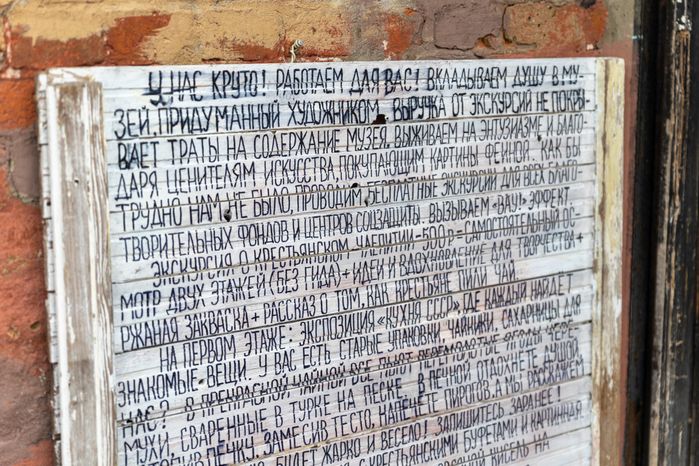 У НАС КРУТО! РАБОТАЕМ ДЛЯ ВАС! ВКЛАДЫВАЕМ ДУШУ В МУ-
ЗЕЙ, ПРИДУМАННЫЙ ХУДОЖНИКОМ. ВЫРУЧКА ОТ ЭКСКУРСИЙ НЕ ПОКРЫ-
ВАЕТ ТРАТЫ НА СОДЕРЖАНИЕ МУЗЕЯ. ВЫЖИВАЕМ НА ЭНТУЗИАЗМЕ И БЛАГО-
ДАРЯ ЦЕНИТЕЛЯМ ИСКУССТВА, ПОКУПАЮЩИМ КАРТИНЫ ФЕЙНОЙ. КАК БЫ
ТРУДНО НАМ НЕ БЫЛО, ПРОВОДИМ БЕСПЛАТНЫЕ ЭКСКУРСИИ ДЛЯ ВСЕХ БЛАГО-
ТВОРИТЕЛЬНЫХ ФОНДОВ И ЦЕНТРОВ СОЦЗАЩИТЫ. ВЫЗЫВАЕМ «ВАУ!» ЭФФЕКТ
ЭКСКУРСИЯ О КРЕСТЬЯНСКОМ ЧАЕПИТИИ - 500Р = САМОСТОЯТЕЛЬНЫЙ ОС-
МОТР ДВУХ ЭТАЖЕЙ (БЕЗ ГИДА) + ИДЕИ И ВДОХНОВЕНИЕ ДЛЯ ТВОРЧЕСТВА +
РЖАНАЯ ЗАКВАСКА + РАССКАЗ О ТОМ, КАК КРЕСТЬЯНЕ ПИЛИ ЧАЙ.
НА ПЕРВОМ ЭТАЖЕ: ЭКСПОЗИЦИЯ «КУХНЯ СССР» ГДЕ КАЖДЫЙ НАЙДЕТ
ЗНАКОМЫЕ ВЕЩИ. У ВАС ЕСТЬ СТАРЫЕ УПАКОВКИ, ЧАЙНИКИ, САХАРНИЦЫ ДЛЯ
НАС? В ПРЕКРАСНОЙ ЧАЙНОЙ ВСЕ ПЬЮТ ПЕРЕМОЛОТЫЕ ЯГОДЫ ЧЕРЕ-
МУХИ, СВАРЕННЫЕ В ТУРКЕ НА ПЕСКЕ. В ПЕЧНОЙ ОТДОХНЕТЕ ДУШОЙ,
ПЕЧКУ, ЗАМЕСИВ ТЕСТО, НАПЕЧЕТЕ ПИРОГОВ. А МЫ РАССКАЖЕМ
БУДЕТ ЖАРКО И ВЕСЕЛО! ЗАПИШИТЕСЬ ЗАРАНЕЕ!
С КРЕСТЬЯНСКИМИ БУФЕТАМИ И
КИСЕЛЬ НА